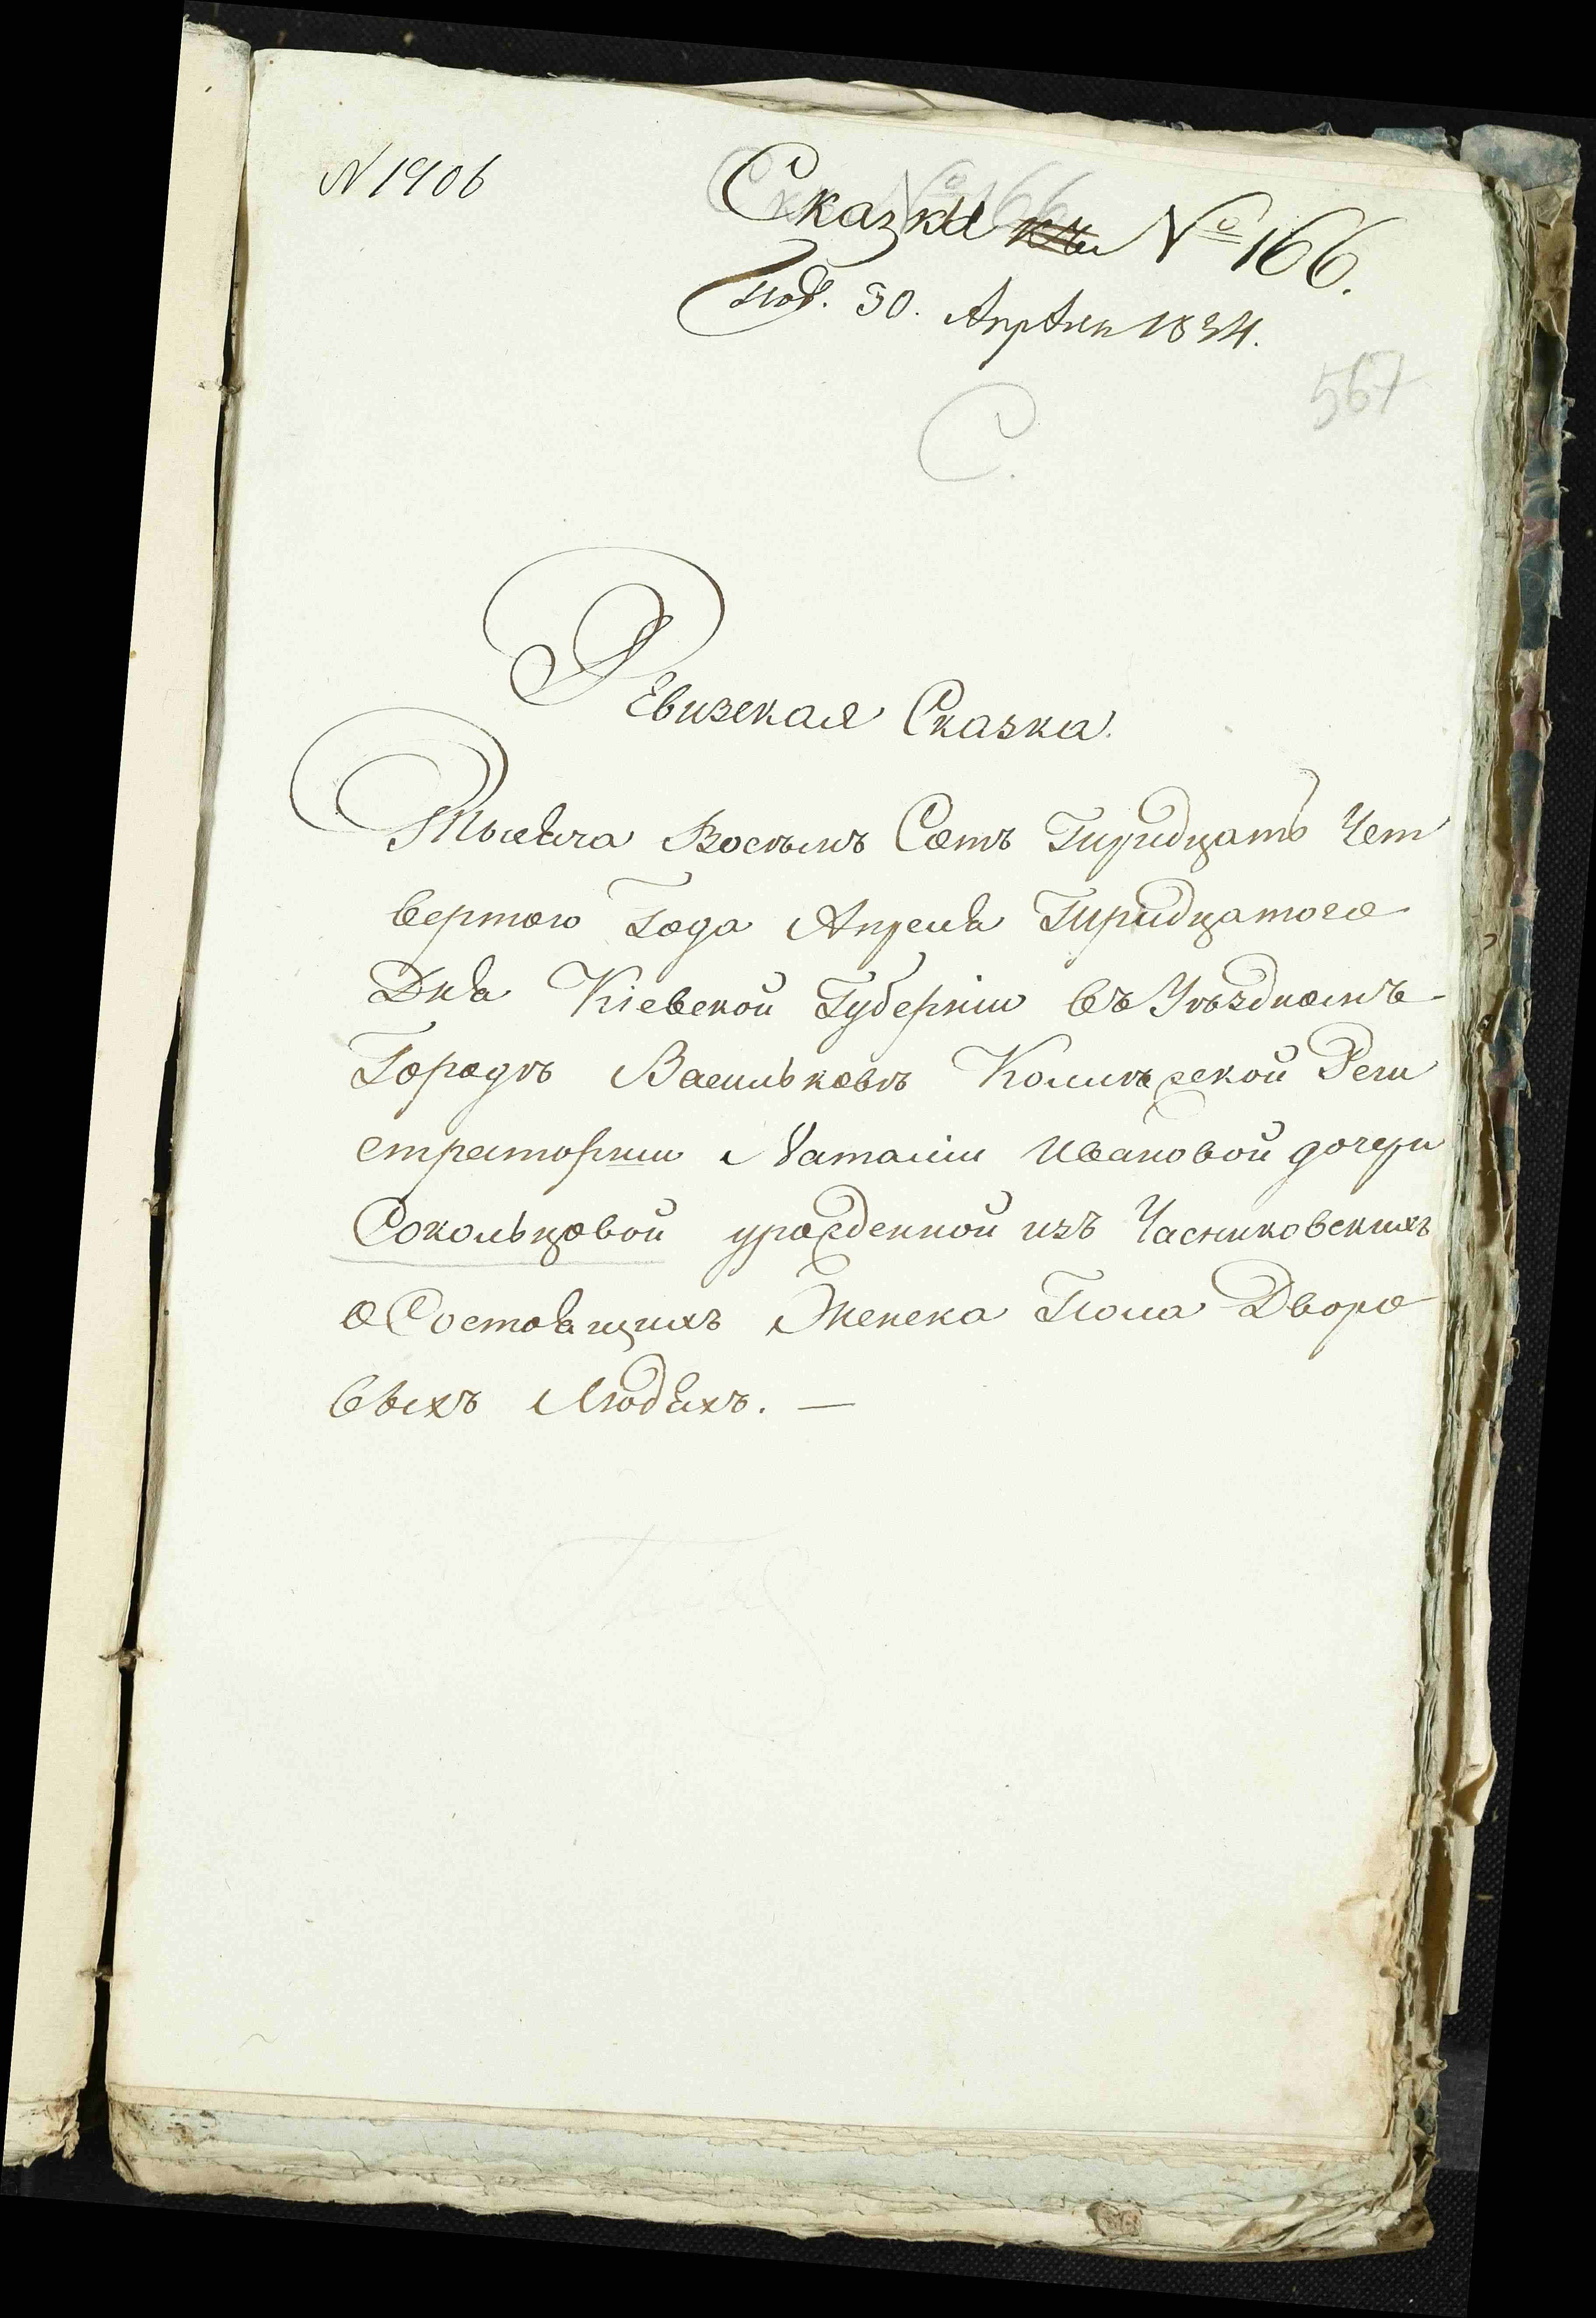 N 1906
Сказка № 166.
Под. 30. Апрѣля 1834.
567
С.
Ревизская Сказка.
Тысяча Восѣмъ Сотъ Тридцать Чет
вертого Года Апреля Тридцатого
Дня Кіевской Губерніи въ Уѣздномъ
Городѣ Васильковѣ Колѣжской Реги
страторши Наталіи Ивановой дочери
Сокольцовой урожденной изъ Часниковскихъ
о Состоящихъ Женска Пола Дворо
выхъ Людяхъ. —